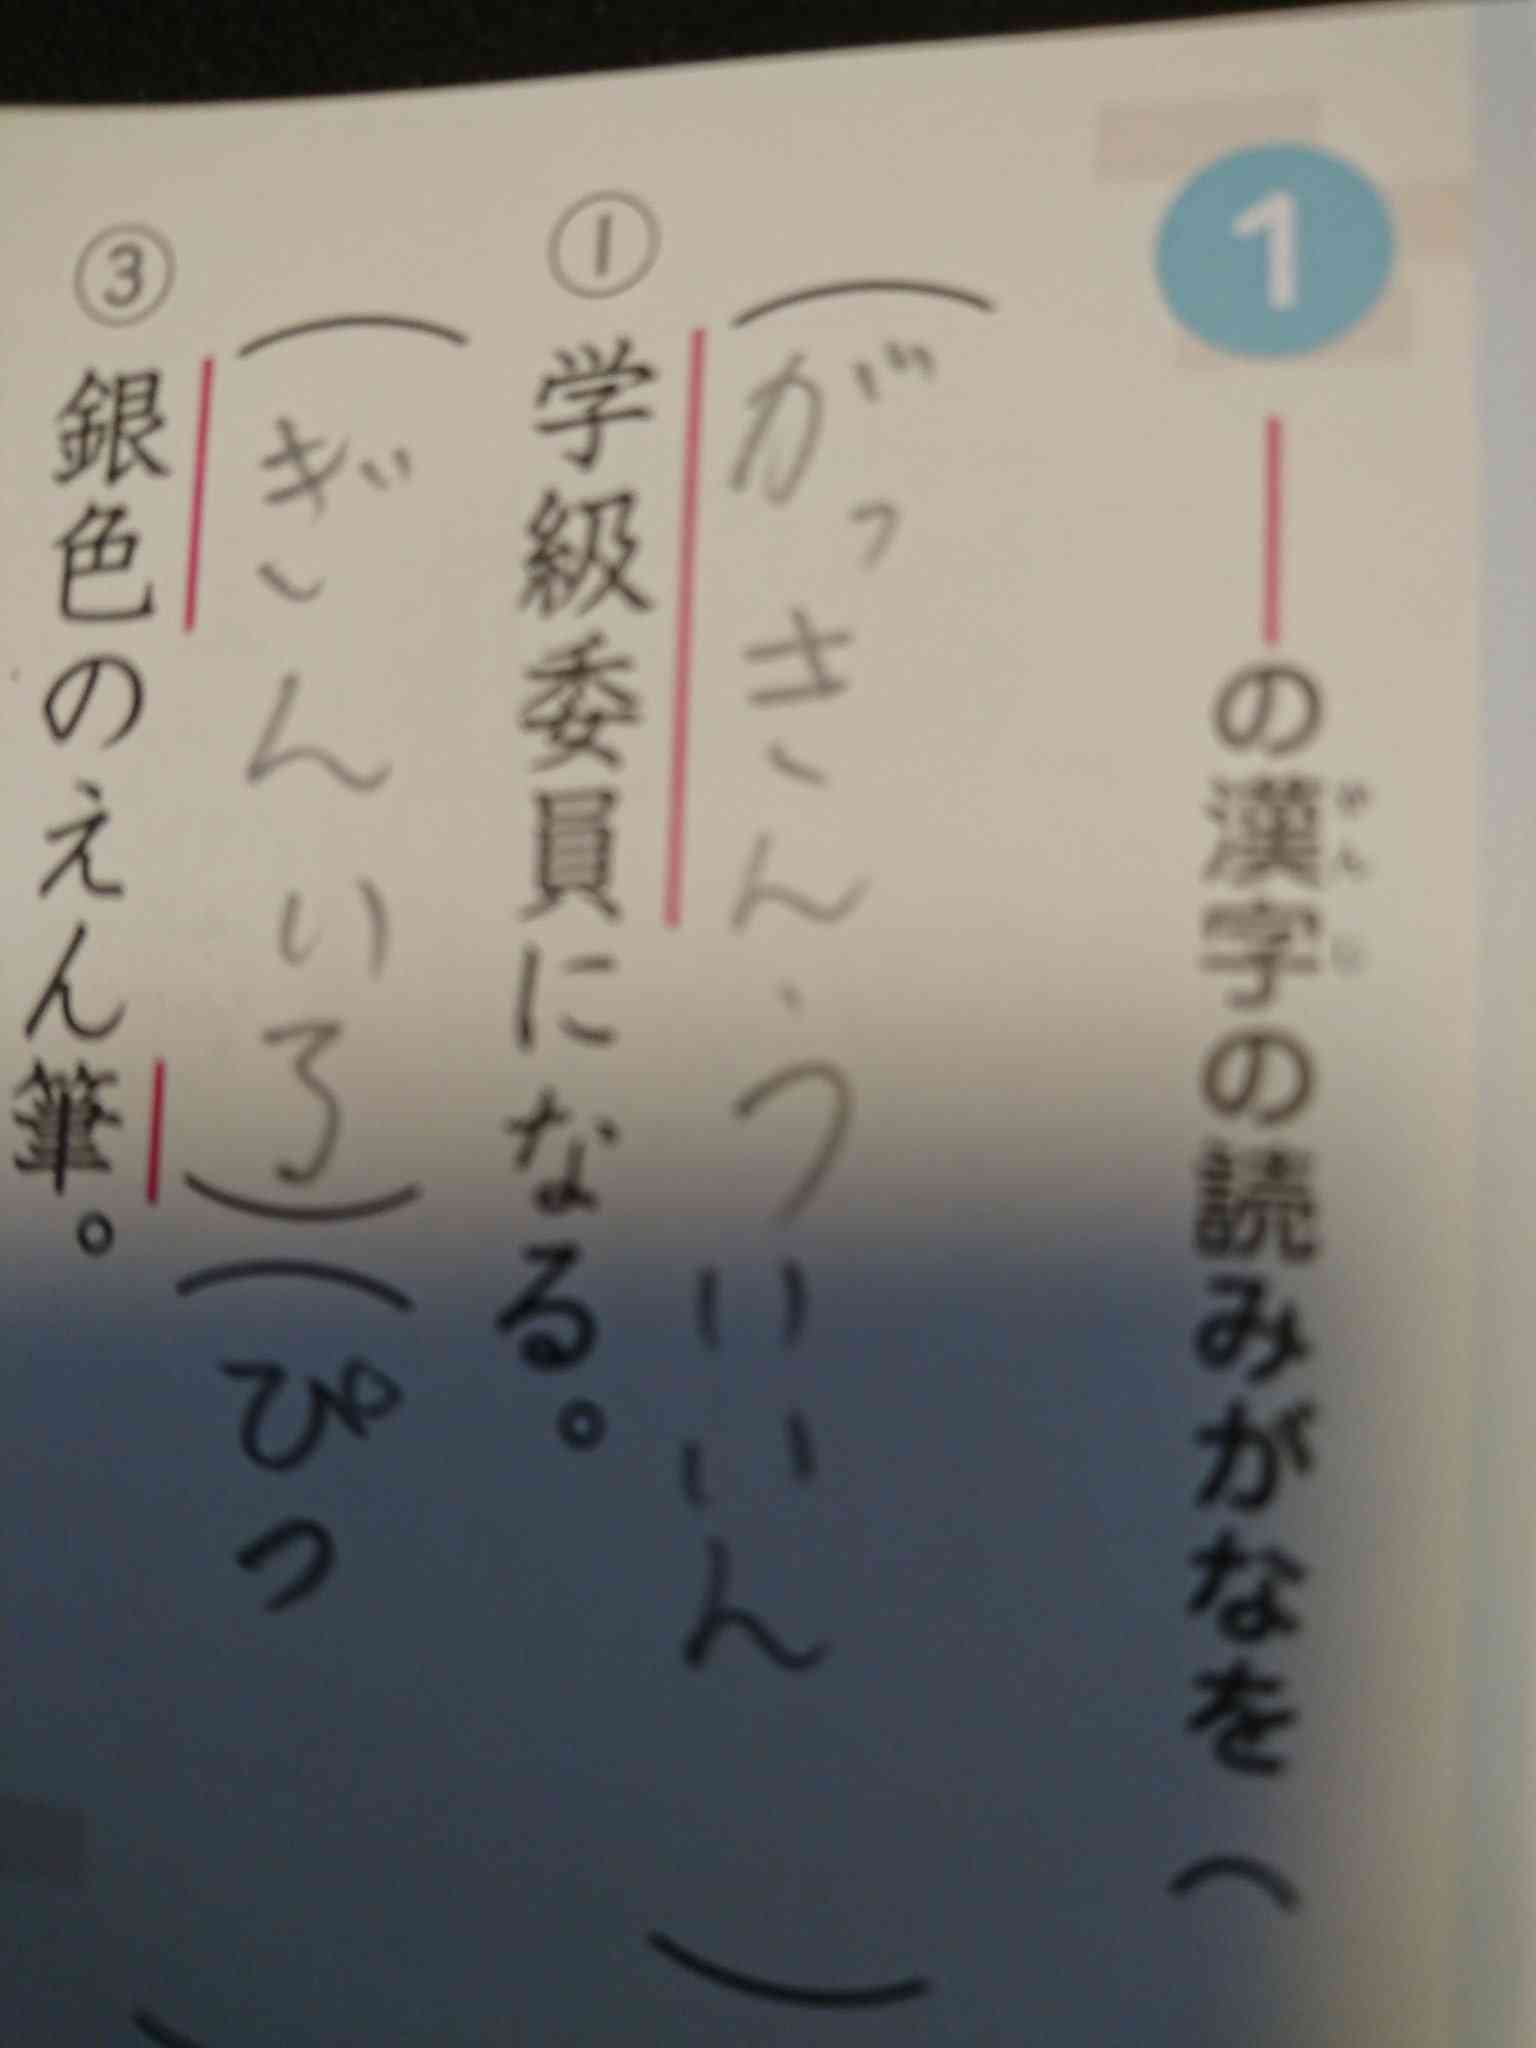 1 ―の漢字の読みがなを（
かんじ
（がっきんういいん）
①学級委員になる。
（ぎんいろ）（ぴつ）
③銀色のえん筆。